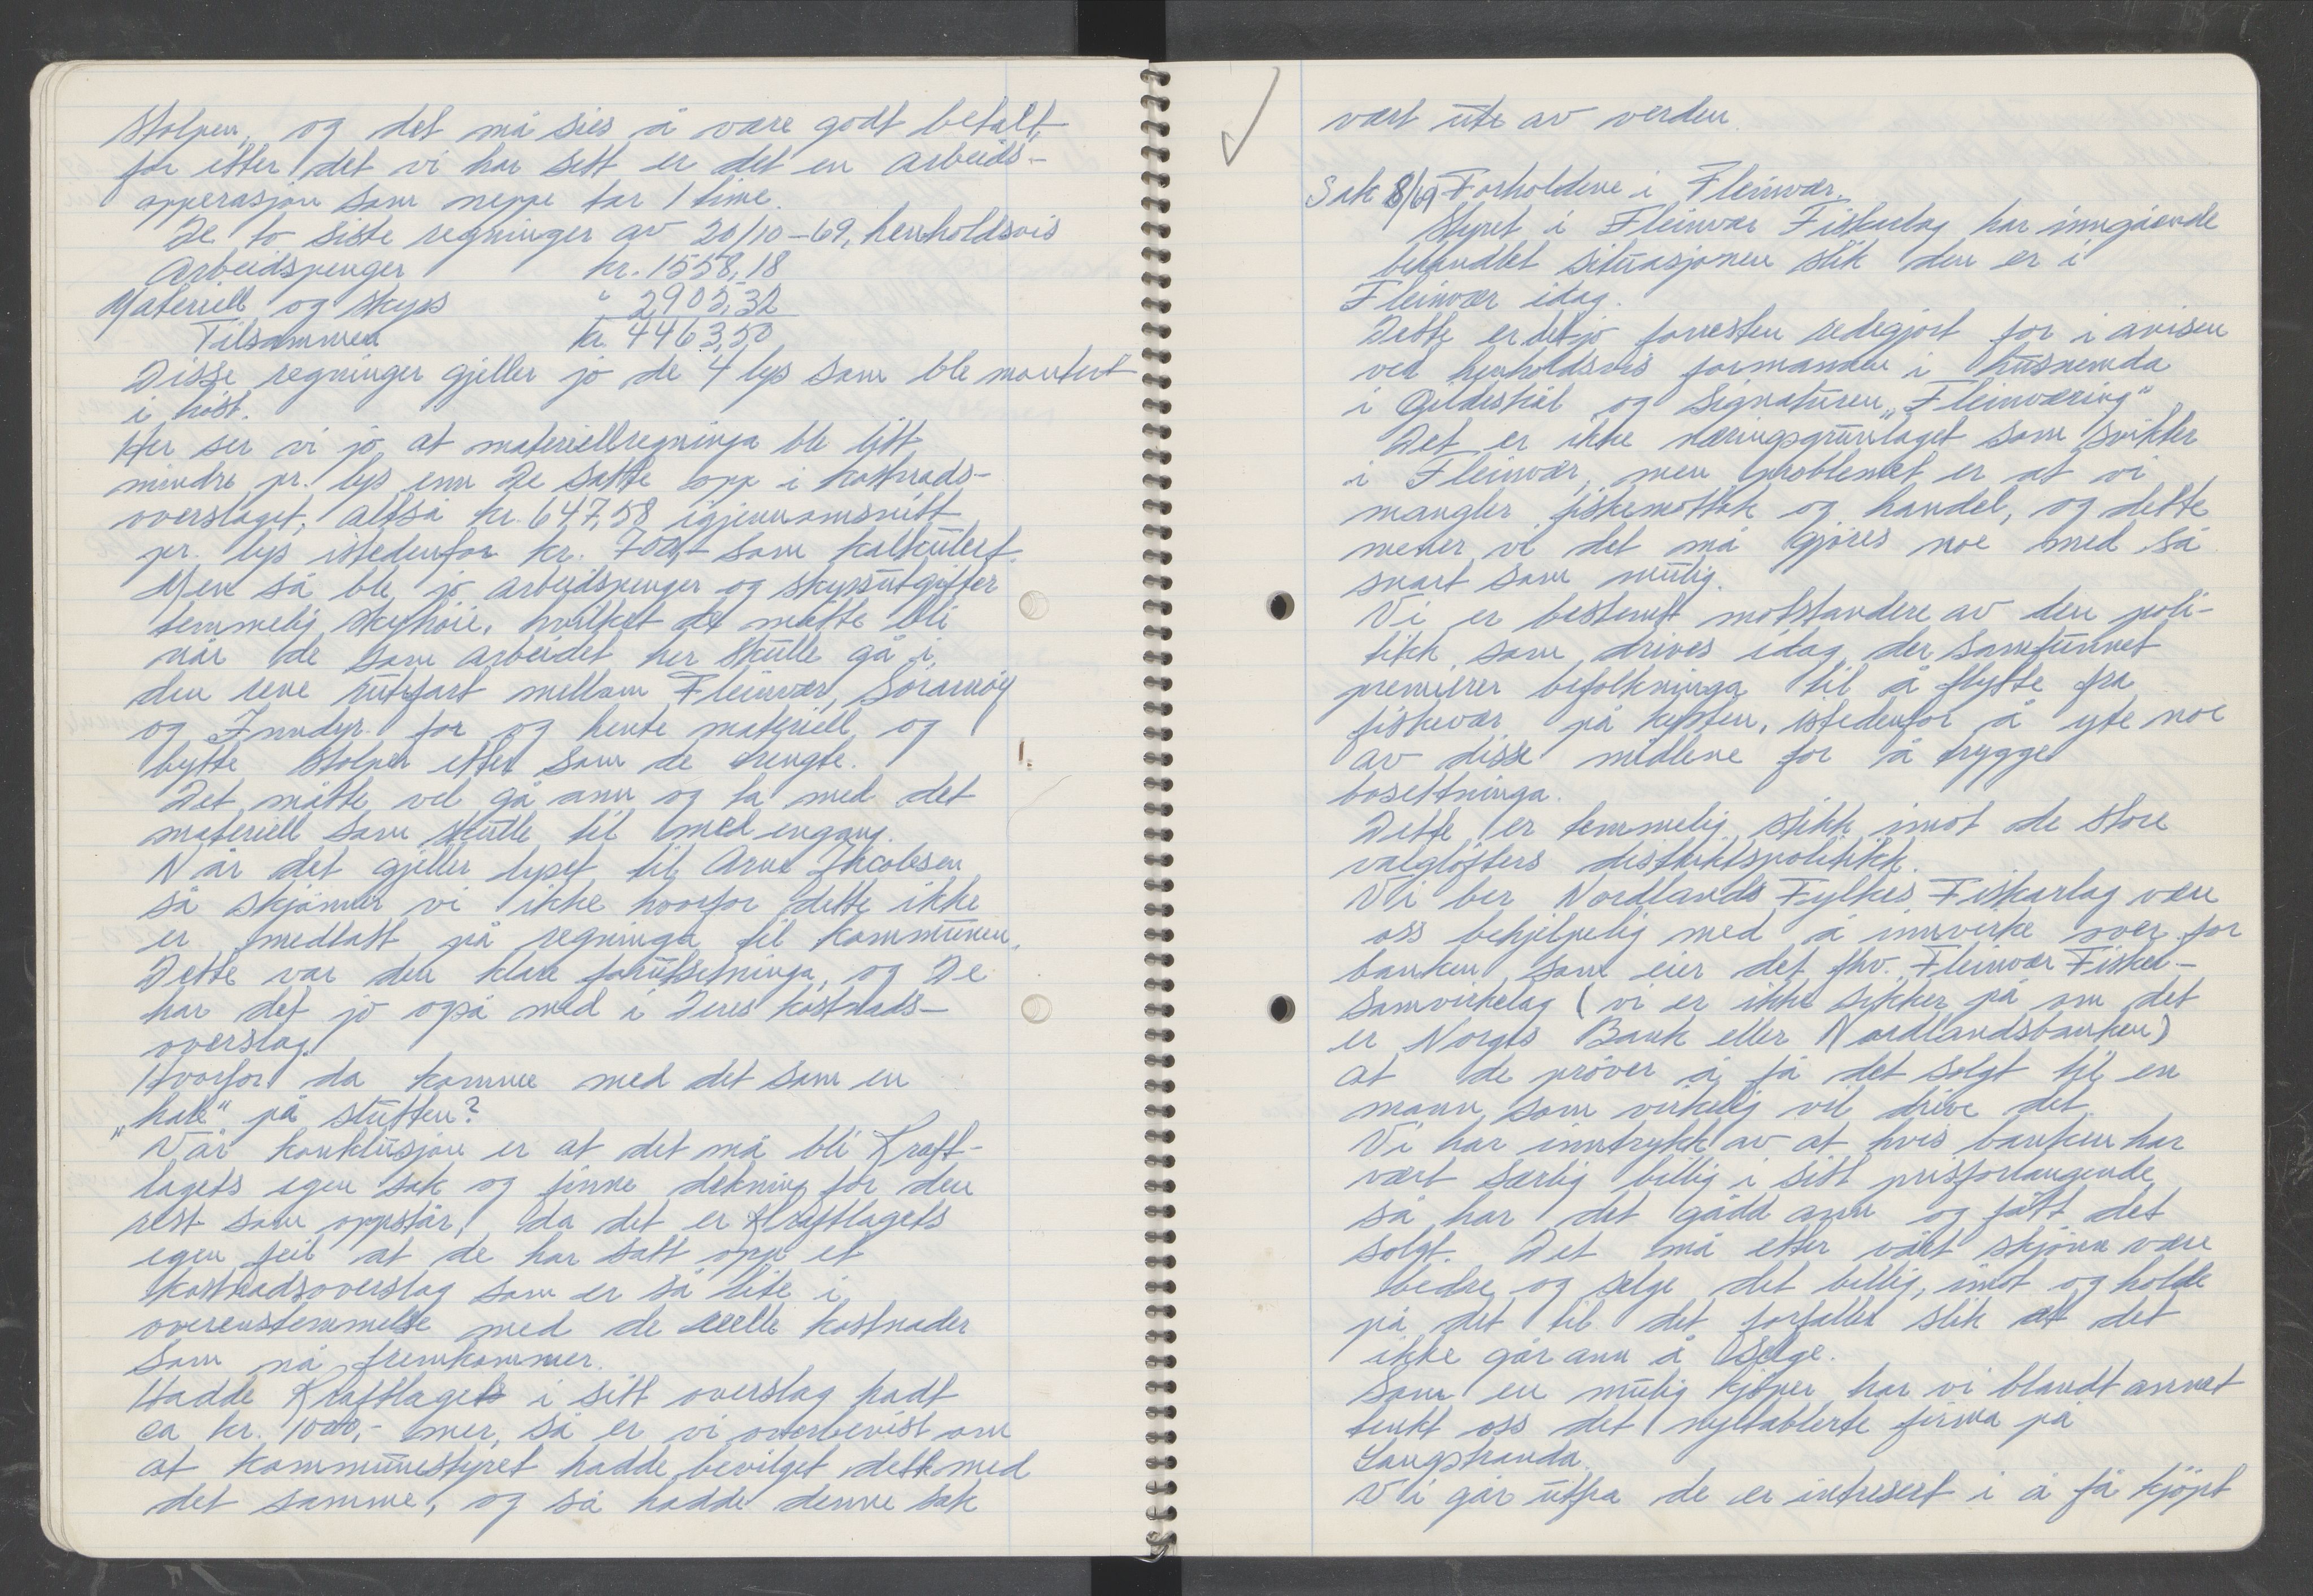 stolpen, og det må sies å være godt betalt,
for etter det vi har sett er det en arbeids-
opperasjon som neppe tar 1 time.
De to siste regninger av 20/10-69, henholdsvis
Arbeidspenger kr. 1558,18
Materiell og skyss " 2905,32
Tilsammen kr. 4463,50
Disse regninger gjeller jo de 4 lys som ble montert
i høst.
Her ser vi jo at materiellregninga ble litt
mindre pr. lys enn De satte opp i kostnads-
overslaget, altså kr. 647,58 igjennomsnitt
pr. lys istedenfor kr. 700,- som kalkulert.
Men så ble jo arbeidspenger og skyssutgifter
temmelig skyhøie, hvilket det måtte bli
når de som arbeidet her skulle gå i
den rene rutefart mellom Fleinvær, Sørarnøy
og Inndyr for og hente materiell og
bytte stolper etter som de trengte.
Det måtte vel gå ann og ta med det
materiell som skulle til med engang.
Når det gjeller lyset til Arne Jhcobsen
så skjønner vi ikke hvorfor dette ikke
er medtatt på regninga til kommunen.
Dette var den klare forutsetninga, og De
har det jo også med i Deres kostnads-
overslag.
Hvorfor da komme med det som en
"hale" på slutten?
Vår konklusjon er at det må bli Kraft-
lagets egen sak og finne dekning for den
rest som oppstår, da det er Kraftlagets
egen feil at de har satt opp et
kostnadsoverslag som er så lite i
overenstemmelse med de reelle kostnader
som nå fremkommer.
Hadde Kraftlagets i sitt overslag hadt
ca kr. 1000,- mer, så er vi overbevist om
at kommunestyret hadde bevilget dette med
det samme, og så hadde denne sak
vært ute av verden.
Sak 8/69 Forholdene i Fleinvær.
Styret i Fleinvær Fiskerlag har inngående
behandlet situasjonen slik den er i
Fleinvær idag.
Dette er det jo forresten redegjort for i avisen
ved henholdsvis formannen i husnemda
i Gildeskål og signaturen "Fleinværing"
Det er ikke næringsgrunlaget som svikter
i Fleinvær, men problemet er at vi
mangler fiskemottak og handel, og dette
mener vi det må gjøres noe med så
snart som mulig.
Vi er bestemt motstandere av den poli-
tikk som drives idag, der samfunnet
premierer befolkninga til å flytte fra
fiskevær på kysten, istedenfor å yte noe
av disse midlene for å trygge
bosettninga.
Dette er temmelig stikk imot de store
valgløfters distriktspolitikk.
Vi ber Nordlands Fylkes Fiskarlag være
oss behjelpelig med å innvirke over for
banken som eier det fhv. Fleinvær Fisker-
samvirkelag (vi er ikke sikker på om det
er Norges Bank eller Nordlandsbanken)
at de prøver å få det solgt til en
mann som virkelig vil drive det.
Vi har inntrykk av at hvis banken har
vært særlig billig i sitt prisforlangende
så har det gådd ann og fått det
solgt. Det må etter vårt skjønn være
bedre og selge det billig, imot og holde
på det til det forfaller slik at det
ikke går ann å selge.
Som en mulig kjøper har vi blandt annet
tenkt oss det nyetablerte firma på
Langstranda.
Vi går utfra de er intresert i å få kjøpt